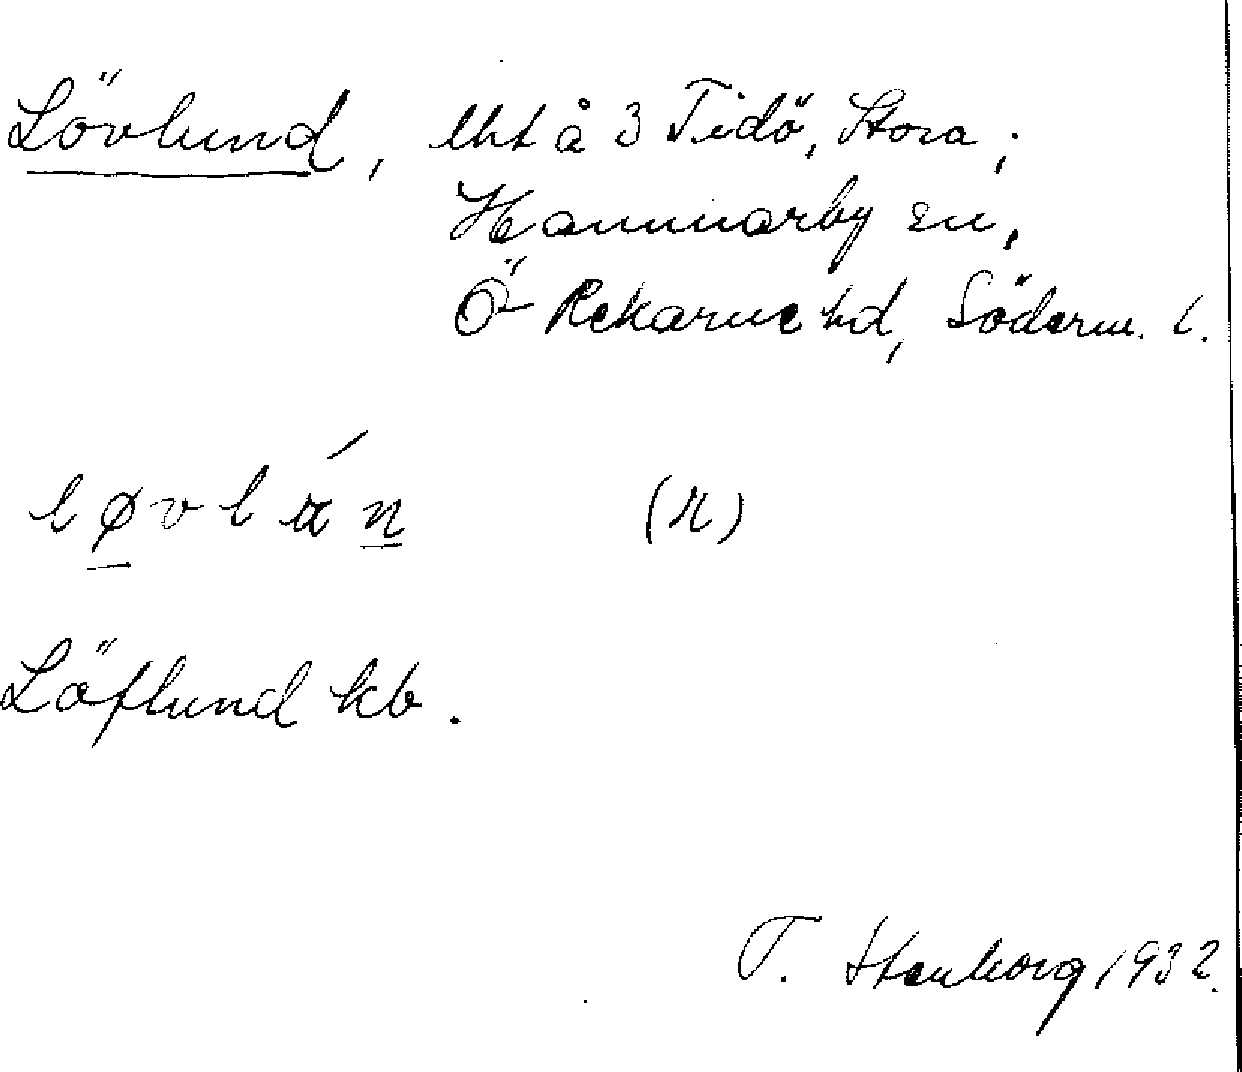 Lövlund, lht å 3 Tidö, Stora;
Hammarby sn,
Ö Rekarne hd, Söderm. l.
(r)
Löflund kb.
T. Stenborg 1932.